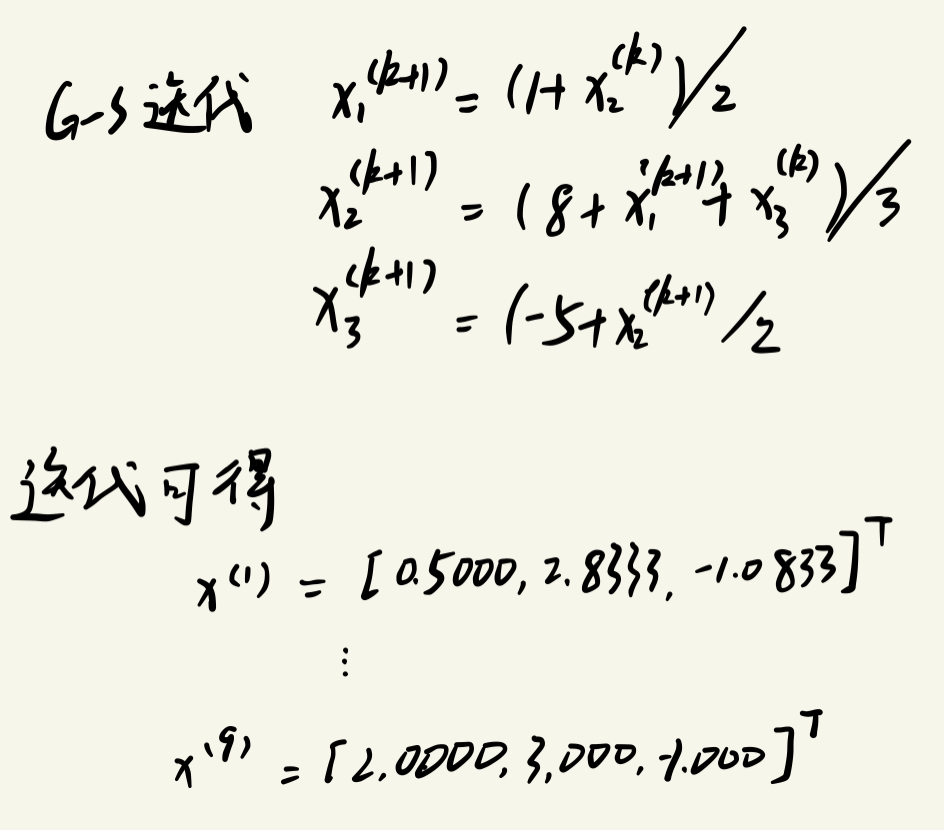 G-S迭代 x₁^(k+1) = (1+ x₂^(k))/2
x₂^(k+1) = (8+ x₁^(k+1) + x₃^(k))/3
x₃^(k+1) = (-5+x₂^(k+1) /2
迭代可得
x^(1) = [0.5000, 2.8333, -1.0833]^T
⋮
x^(9) = [2.0000, 3,000, -1.000]^T